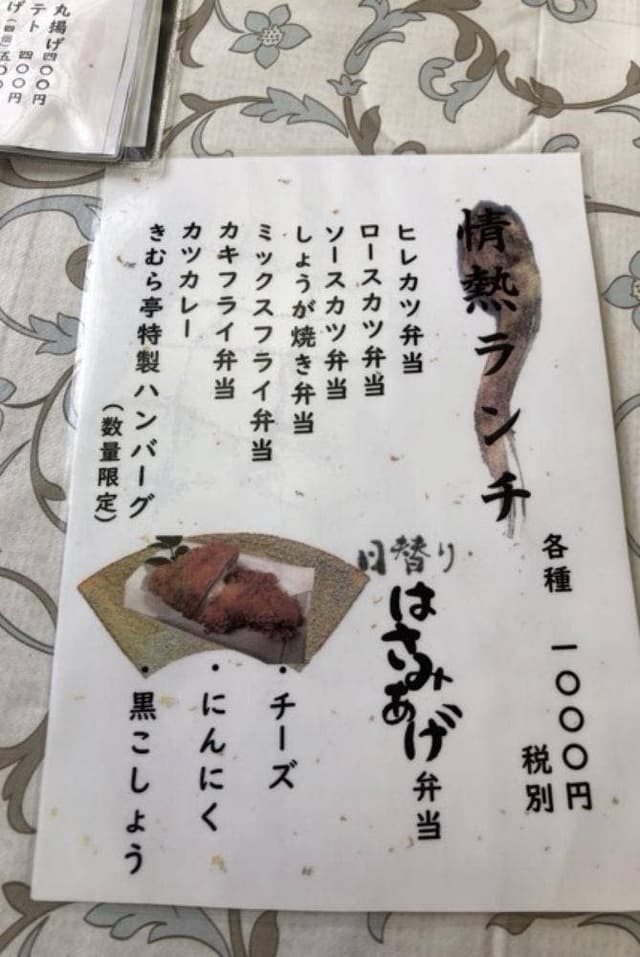 情熱ランチ
各種 一〇〇〇円
税別
ヒレカツ弁当
ロースカツ弁当
ソースカツ弁当
しょうが焼き弁当
ミックスフライ弁当
カキフライ弁当
カツカレー
きむら亭特製ハンバーグ
(数量限定)
日替り
はさみあげ弁当
・チーズ
・にんにく
・黒こしょう
丸揚げ四〇〇円
テト 四〇〇円